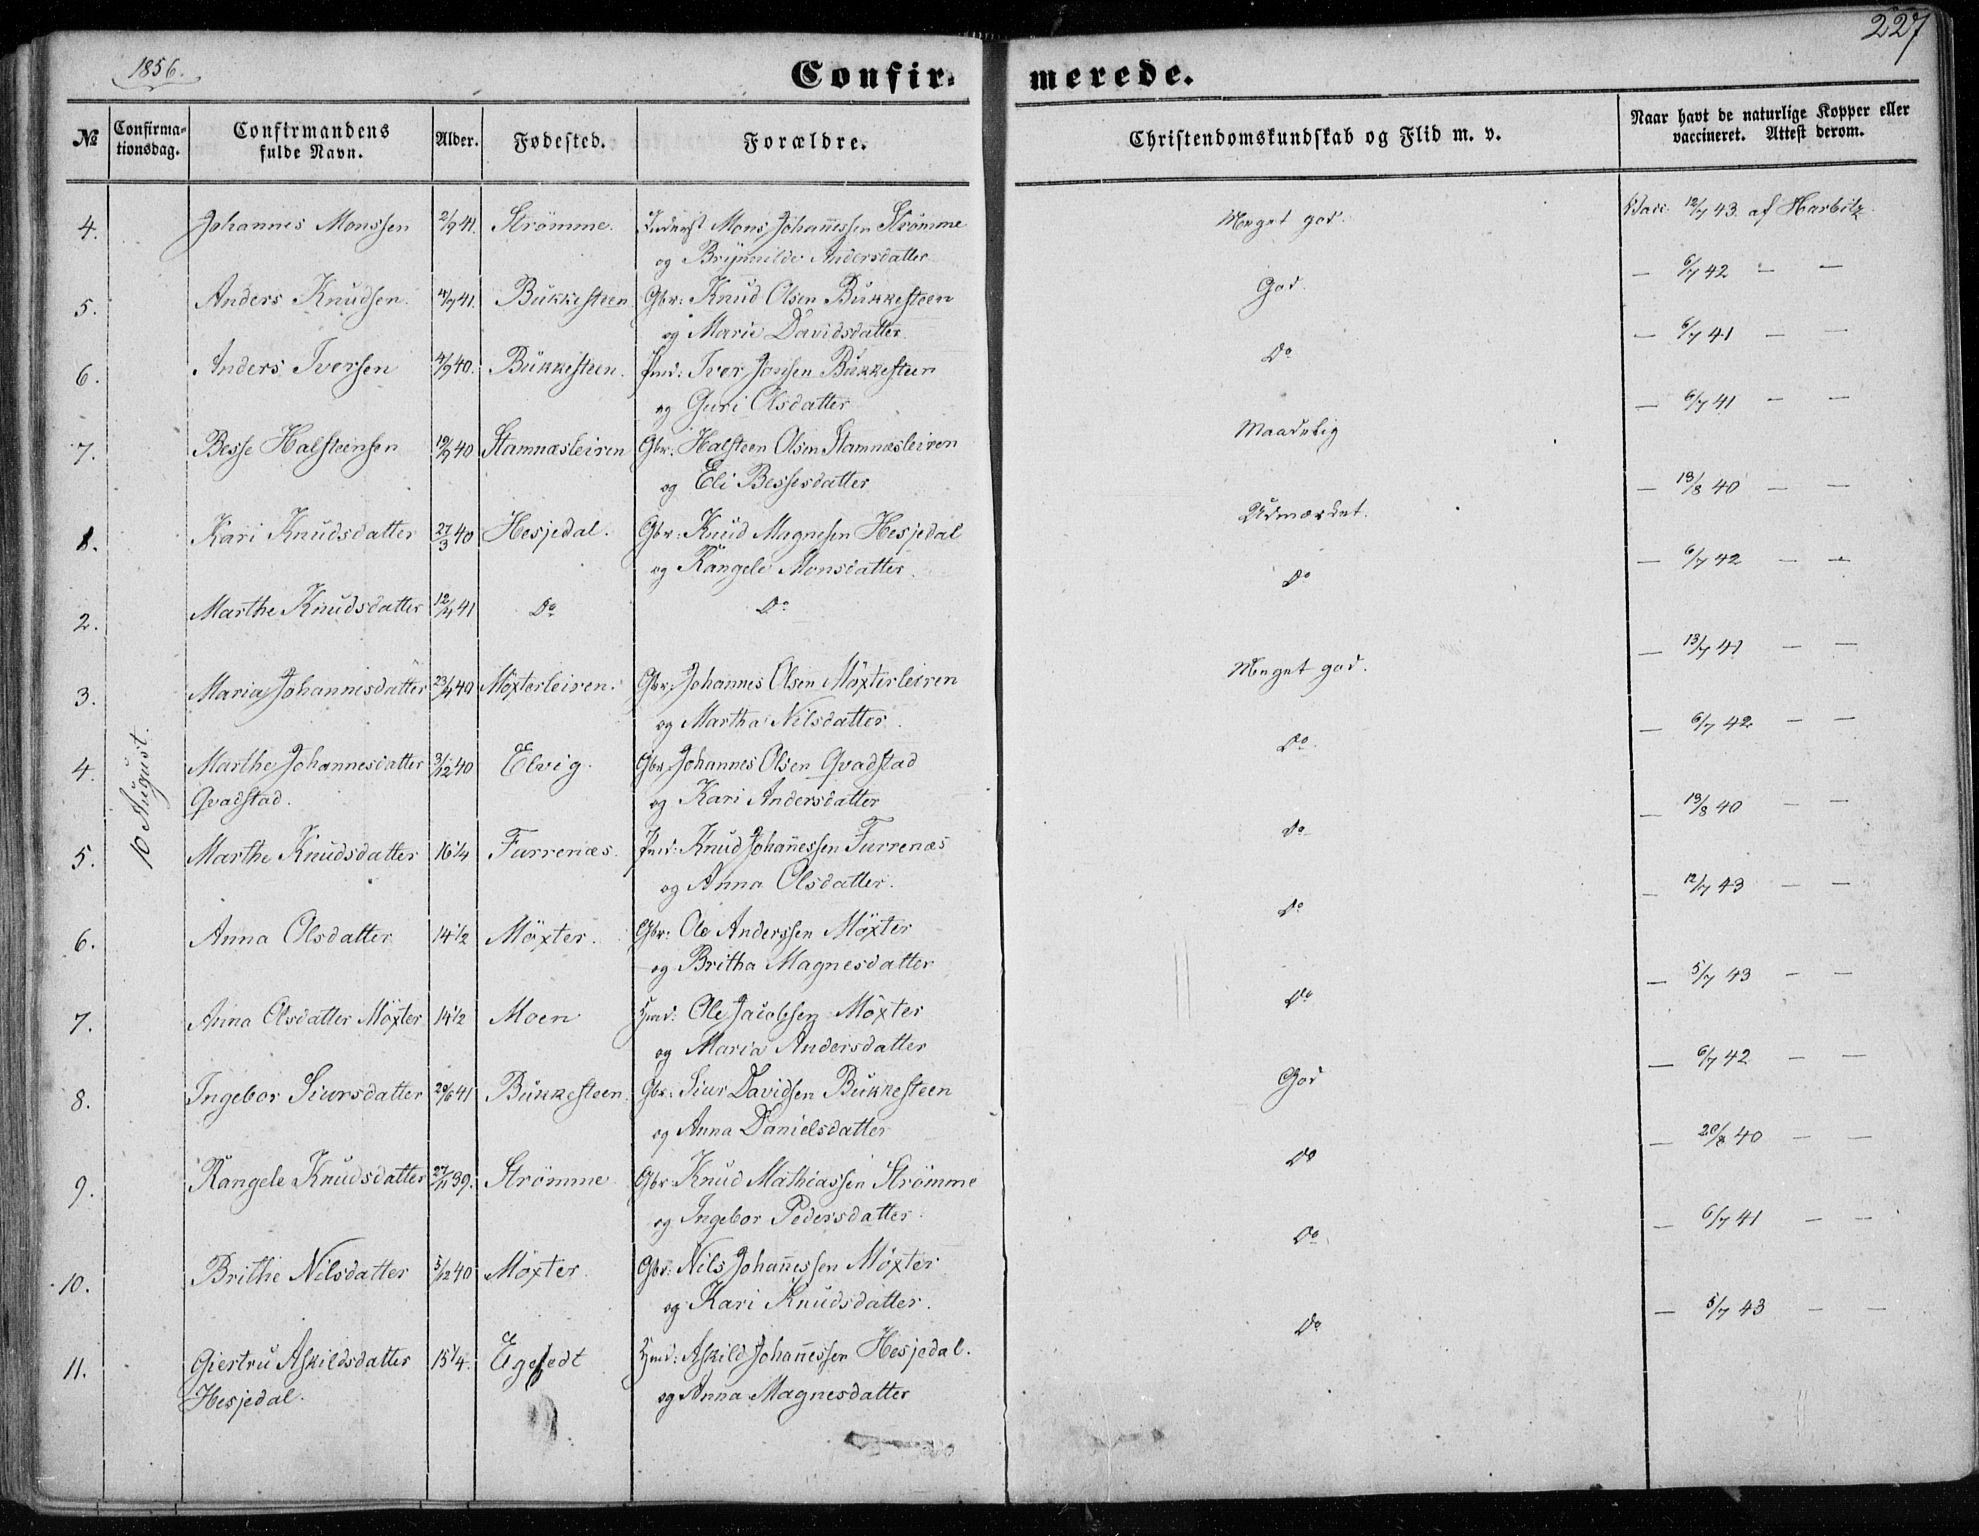 227
1856.
Confir= merede.
№ Confirma-tionsdag. Confirmandens fulde Navn. Alder. Fødested. Forældre. Christendomskundskab og Flid m. v. Naar havt de naturlige Kopper eller vaccineret. Attest derom.
4. Johannes Monssen 2/9 41. Strömme. Inderst Mons Johannessen Strömme Meget god. Vacc. 12/7 43. af Harbitz
og Brynnilde Andersdatter
5. Anders Knudsen. 4/7 41. Bukkesteen Gbr: Knud Olsen Bukkesteen God. — 6/7 42 — —
og Marie Davidsdatter
6. Anders Iversen 4/9 40. Bukkesteen. Pmd: Iver Jonsen Bukkesteen Do — 6/7 41 — —
og Guri Olsdatter
7. Besse Halsteensen 19/9 40 Stamnæsleiren Gbr: Halsteen Olsen Stamnæsleiren Maadelig — 6/7 41 — —
og Eli Bessesdatter
1. Kari Knudsdatter 27/3 40 Hesjedal. Gbr: Knud Magnesen Hesjedal Udmærket. — 13/8 40 — —
og Rangele Monsdatter.
2. Marthe Knudsdatter 12/4 41 Do Do Do — 6/7 42 — —
3. Maria Johannesdatter 23/9 40 Möxterleiren. Gbr: Johannes Olsen Möxterleiren Meget god. — 13/7 41 — —
og Martha Nilsdatter.
10 August.
4. Marthe Johannesdatter 3/12 40 Elvig. Gbr: Johannes Olsen Qvadstad Do. — 6/7 42 — —
Qvadstad. og Kari Andersdatter
5. Marthe Knudsdatter 16 1/4 Furrenæs. Pmd: Knud Johannessen Furrenæs Do — 13/8 40 — —
og Anna Olsdatter.
6. Anna Olsdatter 14 1/2 Möxter. Gbr: Ole Anderssen Möxter Do — 12/7 43 — —
og Britha Magnesdatter
7. Anna Olsdatter Möxter 14 1/2 Moen Hmd: Ole Jacobsen Möxter Do — 5/7 43 — —
og Maria Andersdatter
8. Ingebor Siursdatter 29/6 41 Bukkesteen. Gbr: Siur Davidsen Bukkesteen God — 6/7 42 — —
og Anna Danielsdatter
9. Rangele Knudsdatter 27/11 39. Strömme Gbr: Knud Mathiassen Strömme Do — 20/8 40 — —
og Ingebor Pedersdatter.
10. Brithe Nilsdatter 5/12 40 Möxter. Gbr: Nils Johannessen Möxter Do. — 6/7 41 — —
og Kari Knudsdatter.
11. Giertru Askildsdatter 15 1/4. Egesedt Hmd: Askild Johannessen Hesjedal. Do — 5/7 43 — —
Hesjedal. og Anna Magnesdatter